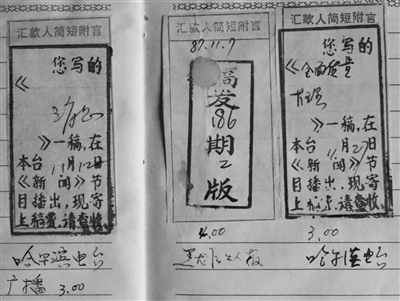 汇款人简短附言
您写的
《
》一稿,在
本台11月12日
《新闻》节
目播出,现寄
上稿费,请查收。
哈尔滨电台
广播 3.00
汇款人简短附言
87.11.7
稿
发
186
期
2
版
4.00
黑龙江工人报
汇款人简短附言
您写的
《全面质量
》一稿,在
本台11月2日
《新闻》节
目播出,现寄
上稿费,请查收。
3.00
哈尔滨电台